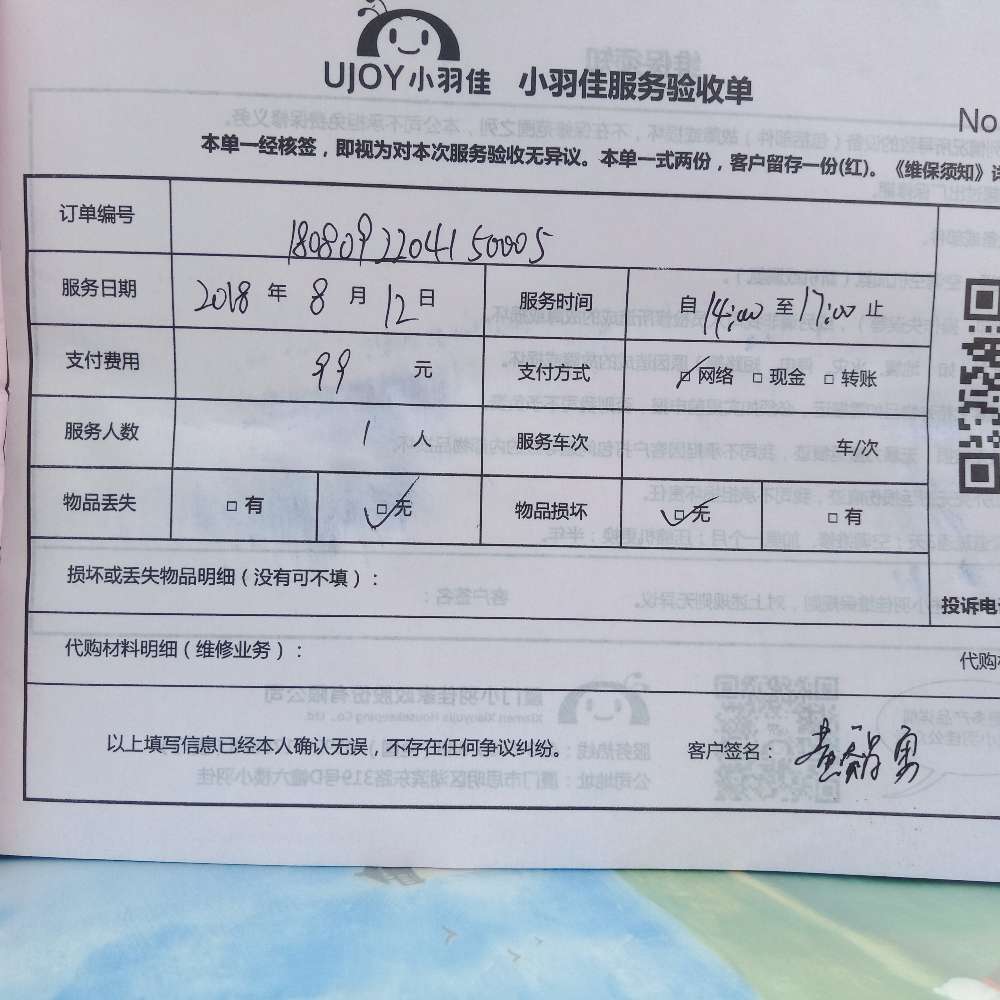 UJOY小羽佳 小羽佳服务验收单
No
本单一经核签，即视为对本次服务验收无异议。本单一式两份，客户留存一份(红)。《维保须知》详
订单编号 1808092204150005
服务日期 2018 年 8 月 12 日 服务时间 自 14:00 至 17:00 止
支付费用 99 元 支付方式 □网络 □现金 □转账
服务人数 1 人 服务车次 车/次
物品丢失 □有 □无 物品损坏 □无 □有
损坏或丢失物品明细（没有可不填）：
投诉电
代购材料明细（维修业务）：
代购
以上填写信息已经本人确认无误，不存在任何争议纠纷。 客户签名：